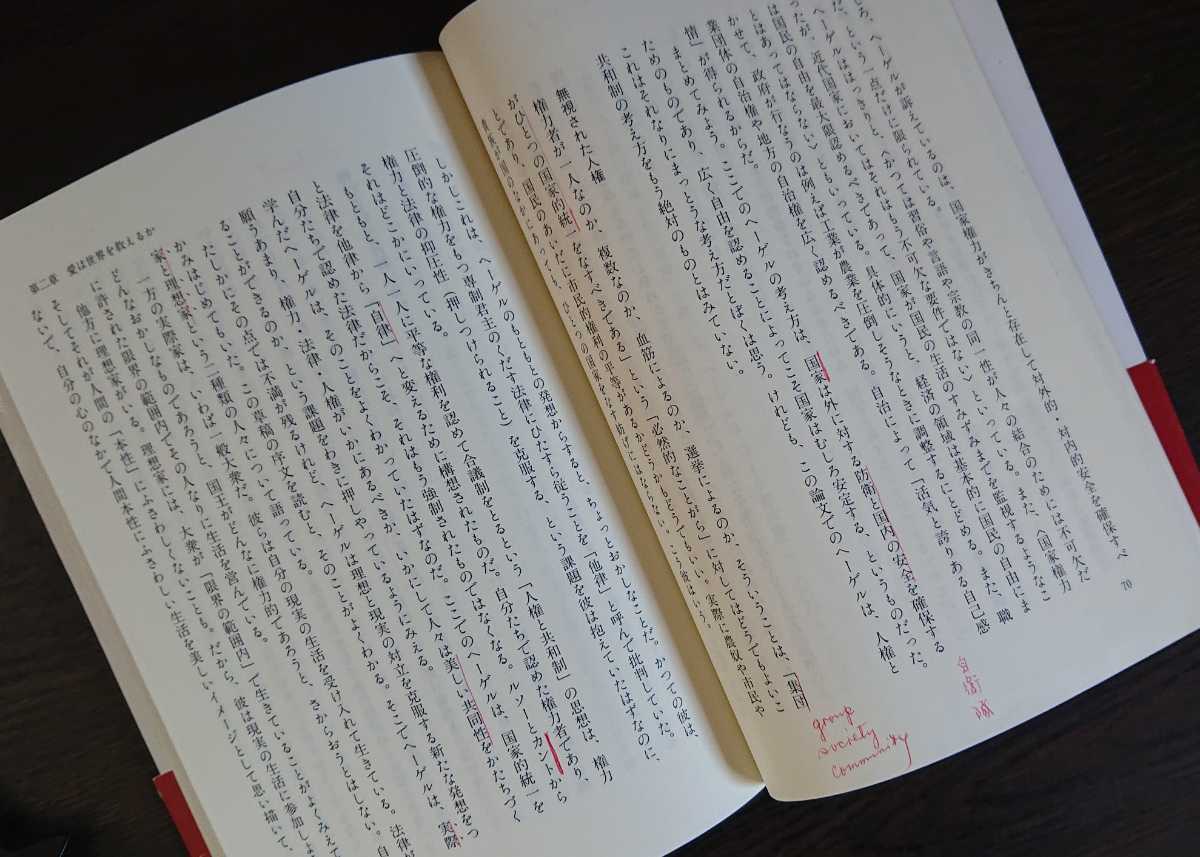 ころ、ヘーゲルが訴えているのは、国家権力がきちんと存在して対外的・対内的安全を確保すべ
だ、という一点だけに限られている。
ヘーゲルははっきりと、〈かつては習俗や言語や宗教の同一性が人々の結合のためには不可欠だ
ったが、近代国家においてはそれはもう不可欠な要件ではない〉といっている。また、〈国家権力
は国民の自由を最大限認めるべきであって、国家が国民の生活のすみずみまでを監視するようなこ
とはあってはならない〉ともいっている。具体的にいうと、経済の領域は基本的に国民の自由にま
かせて、政府が行なうのは例えば工業が農業を圧倒しそうなときに調整するにとどめる。また、職
業団体の自治権や地方の自治権を広く認めるべきである。自治によって「活気と誇りある自己感
情」が得られるからだ。
まとめてみよう。ここでのヘーゲルの考え方は、国家は外に対する防衛と国内の安全を確保する
ためのものであり、広く自由を認めることによってこそ国家はむしろ安定する、というものだった。
これはそれなりにまっとうな考え方だとぼくは思う。けれども、この論文でのヘーゲルは、人権と
共和制の考え方をもう絶対のものとはみていない。
無視された人権
権力者が一人なのか、複数なのか、血筋によるのか、選挙によるのか、そういうことは、「集団
がひとつの国家的統一をなすべきである」という「必然的なことがら」に対してはどうでもよいこ
とであり、国民のあいだに市民的権利の平等があるかどうかもどうでもいい。実際に農奴や市民や
貴族が国のなかにあっても、ひとつの国家をなす妨げにはならない。こう彼はいう。
70
自衛隊
group
society
community
しかしこれは、ヘーゲルのもともとの発想からすると、ちょっとおかしなことだ。かつての彼は、
圧倒的な権力をもつ専制君主のくだす法律にひたすら従うことを「他律」と呼んで批判していた。
権力と法律の抑圧性（押しつけられること）を克服する、という課題を彼は抱えていたはずなのに、
それはどこかにいっている。
もともと、一人一人に平等な権利を認めて合議制をとるという「人権と共和制」の思想は、権力
と法律を他律から「自律」へと変えるために構想されたものだ。自分たちで認めた権力者であり、
自分たちで認めた法律だからこそ、それはもう強制されたものではなくなる。ルソーとカントから
学んだヘーゲルは、そのことをよくわかっていたはずなのだ。ここでのヘーゲルは、国家的統一を
願うあまり、権力・法律・人権がいかにあるべきか、いかにして人々は美しい共同性をかたちづく
ることができるのか、という課題をわきに押しやっているようにみえる。
たしかにその点では不満が残るけれど、ヘーゲルは理想と現実の対立を克服する新たな発想をつ
かみはじめてもいた。この草稿の序文を読むと、そのことがよくわかる。そこでヘーゲルは、実際
家と理想家という二種類の人々について語っている。
一方の実際家は、いわば一般大衆だ。彼らは自分の現実の生活を受け入れて生きている。法律が
どんなおかしなものであろうと、国王がどんなに権力的であろうと、さからおうとはしない。自
に許された限界の範囲内でその人なりに生活を営んでいる。
他方に理想家がいる。理想家には、大衆が「限界の範囲内」で生きていることがよくみえて
そしてそれが人間の「本性」にふさわしくないことも。だから、彼は現実の生活に参加しよ
ないで、自分の心のなかで人間本性にふさわしい生活を美しいイメージとして思い描いて、
第二章　愛は世界を救えるか